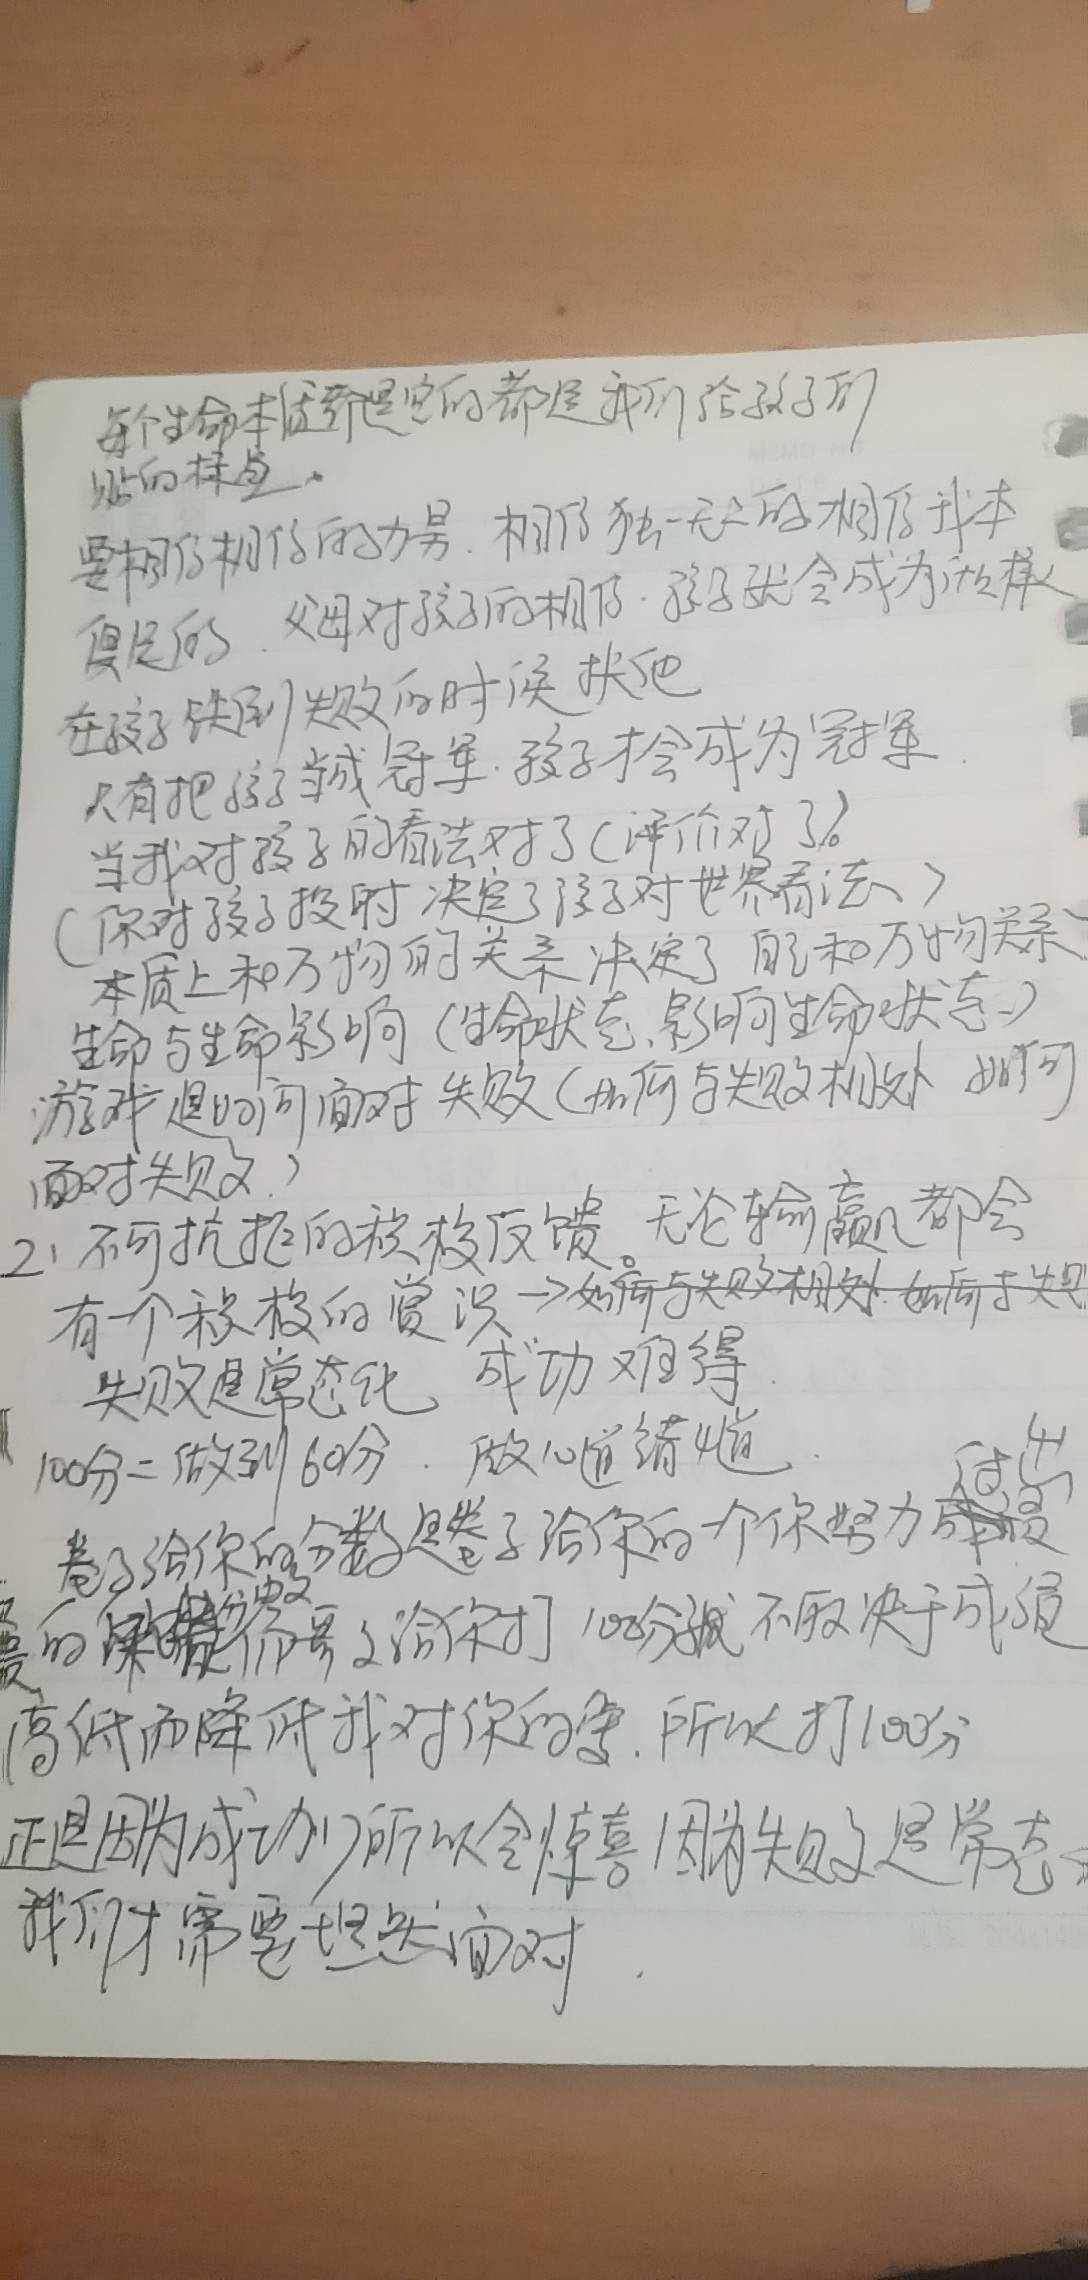 每个生命本质都是空的都是我们给孩子们
贴的标
要相信相信的力量.相信独一无二的相信我本
具足的.父母对孩子的相信.孩子就会成为什么样
在孩子 失败的时候扶他
只有把孩子当成冠军.孩子才会成为冠军.
当我对孩子的看法对了(评价对了)。
(你对孩子投射决定了孩子对世界看法、)
本质上和万物的关系决定了自己和万物关系
生命与生命影响(生命状态影响生命状态、)
游戏是如何面对失败(如何与失败相处 如何
面对失败.)
2、不可抗拒的积极反馈。无论输赢都会
有一个积极的赏识→如何与失败相处.如何与失败
失败是常态化、成功难得.
100分=做到60分.做10道错4道.
卷子给你的分数是卷子给你的一个你努力 付出
的 分数 给你打100分 不取决于成绩
高低而降低我对你的爱.所以打100分
正是因为成功少所以会惊喜因为失败是常态、
我们才需要坦然面对.